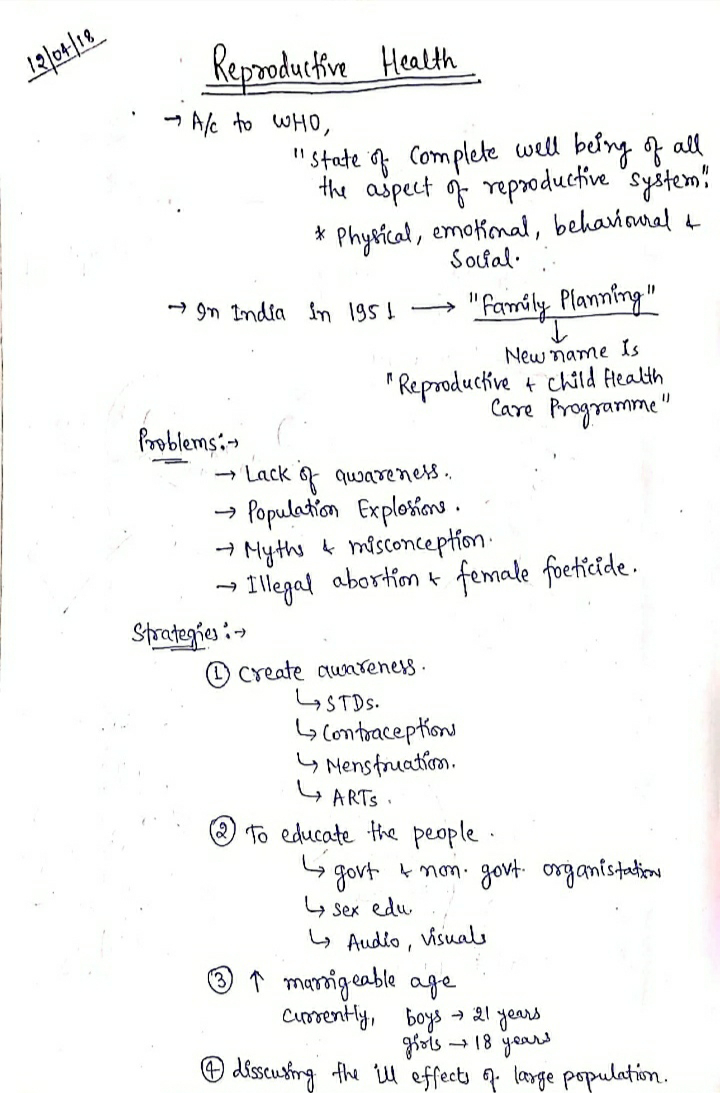 12/04/18
Reproductive Health
→ A/c to WHO,
"State of Complete well being of all
the aspect of reproductive system".
* Physical, emotional, behavioural &
Social.
→ In India in 1951 → "Family Planning"
↓
New name Is
"Reproductive & child Health
Care Programme"
Problems:→
→ Lack of awareness.
→ Population Explosions.
→ Myths & misconception.
→ Illegal abortion & female foeticide.
Strategies:→
① Create awareness.
↳ STDs.
↳ Contraceptions
↳ Menstruation.
↳ ARTs.
② To educate the people.
↳ govt & non. govt. organistation
↳ sex edu.
↳ Audio, visuals
③ ↑ marrigeable age
Currently, boys → 21 years
girls → 18 years
④ disscusing the ill effects of large population.